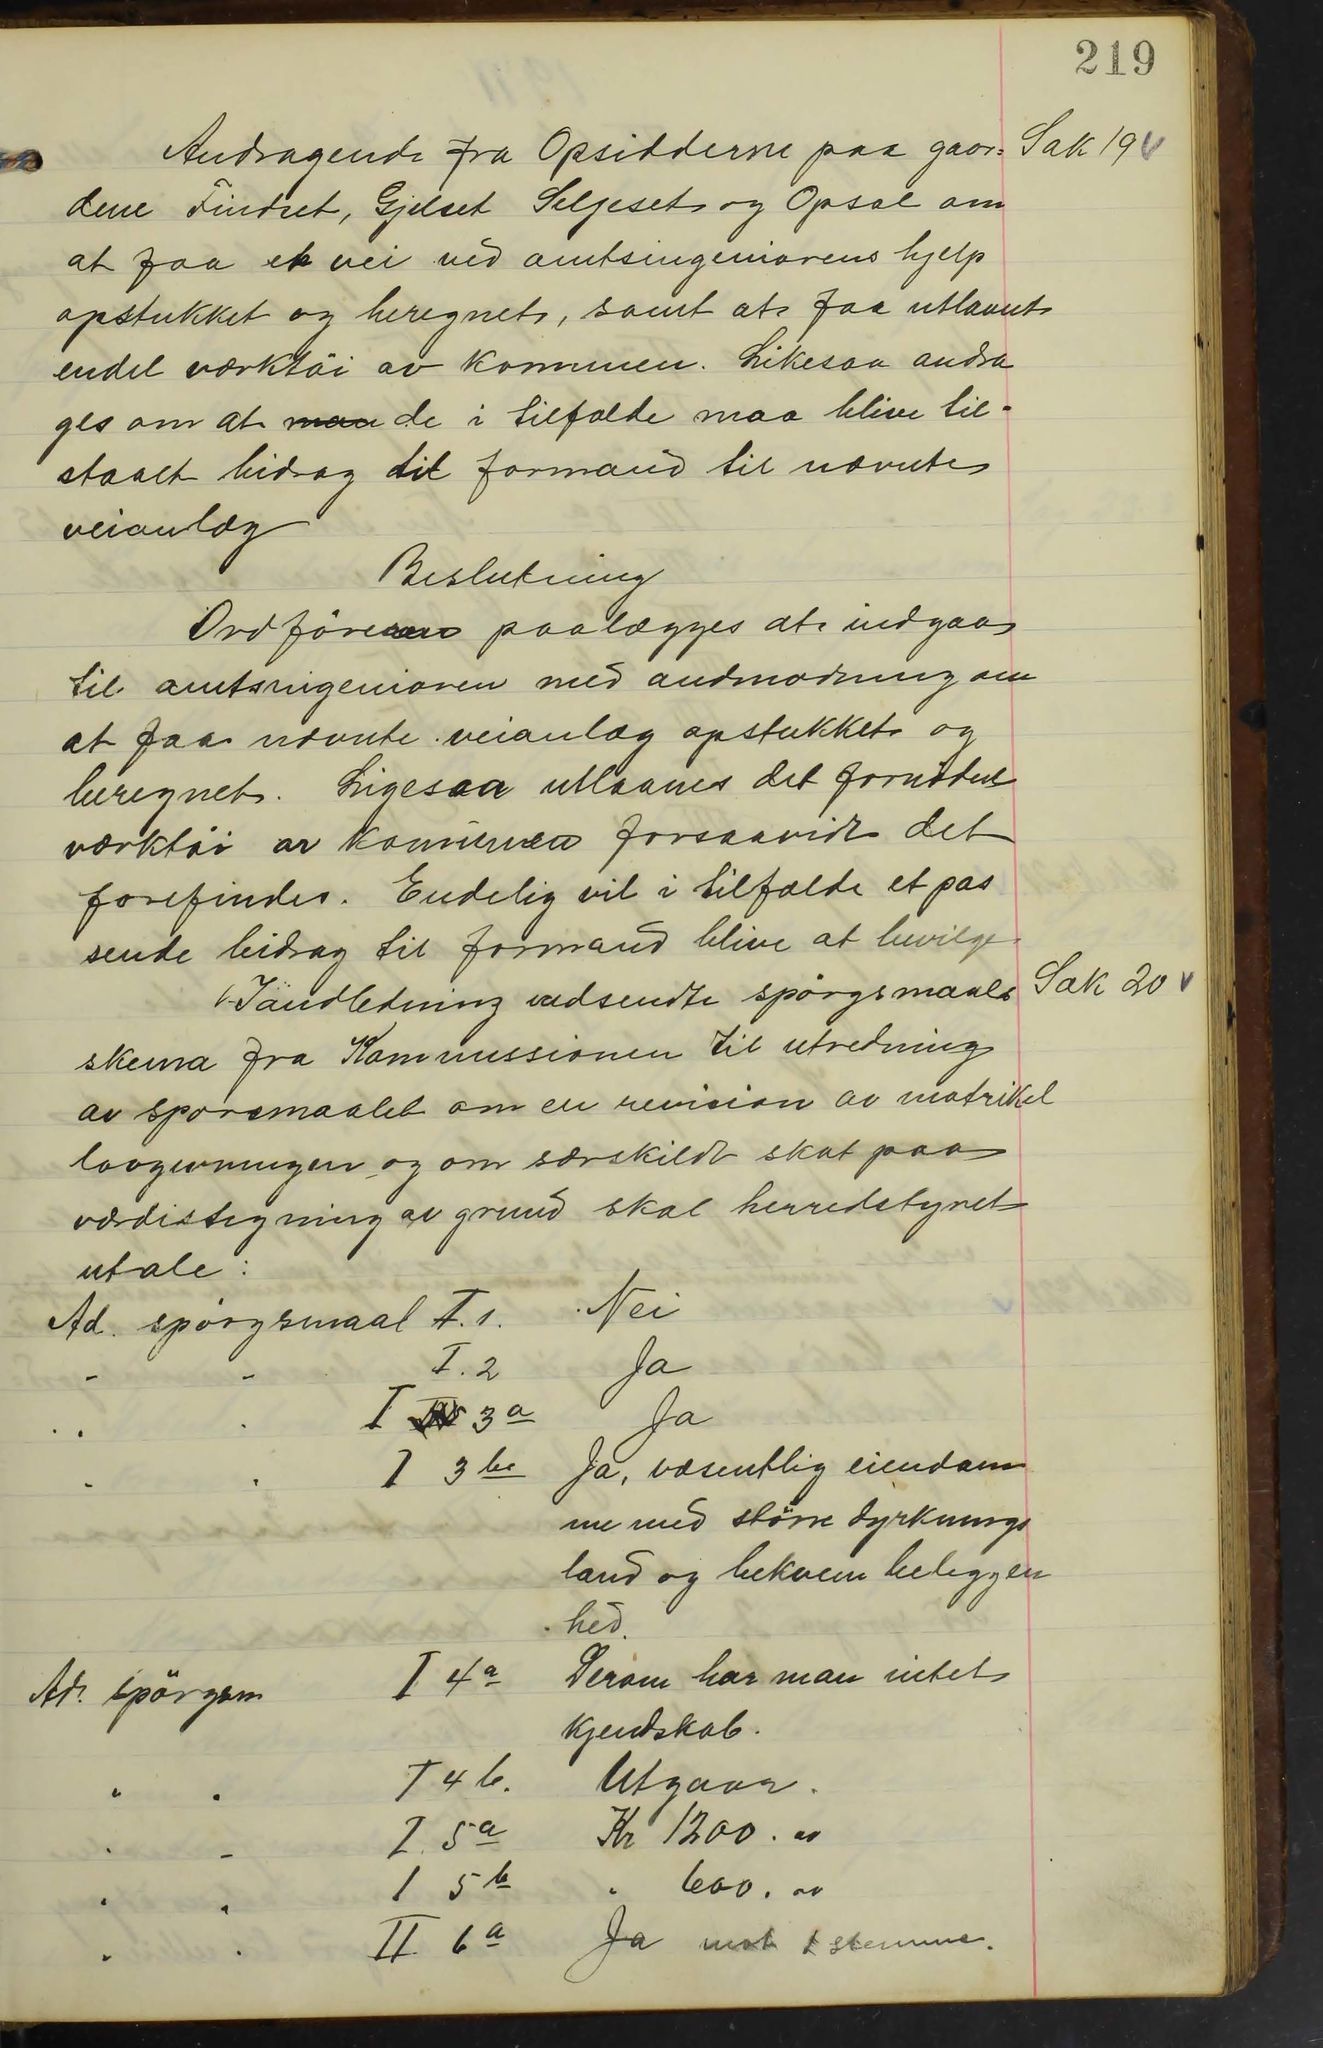 219
Andragende fra Opsidderne paa gaor= Sak 19 v
dene Findset, Gjelset Seljeset og Opsal om
at faa et vei ved amtsingeniorens hjelp
opstukket og beregnet, samt at faa utlaant
endel værktöi av kommunen. Likesaa andra
ges om at maa de i tilfælde maa blive til-
staalt bidrag til formand til nævnte
veianlæg
Beslutning
Ordföreren paalægges at indgaa
til amtsingenioren med andmodning om
at faa nævnte veianlæg opstukket og
beregnet. Ligesaa utlaanes det fornödne
værktöi av kommunen forsaavidt det
forefindes. Endelig vil i tilfælde et pas
sende bidrag til formand blive at bevilge.
I andledning indsendte spörgsmaals Sak 20 v
skema fra Kommissionen til utredning
av sporsmaalet om en revision av matrikel
lovgivningen og om særskildt skat paa
værdistigning av grund skal herredstyret
utale:
Ad. spörgsmaal I. 1. Nei
- - I. 2 Ja
. . . I 3 a Ja
- . I 3 b Ja, væsentlig eiendom
me med större dyrknings
land og bekvem beliggen
hed.
Ad. spörgsm I 4 a Derom har man intet
kjendskab.
" . I 4 b. Utgaar.
. - I. 5 a Kr 1200. 00
. . I 5 b " 600. 00
. . II 6 a Ja mot 1 stemme.